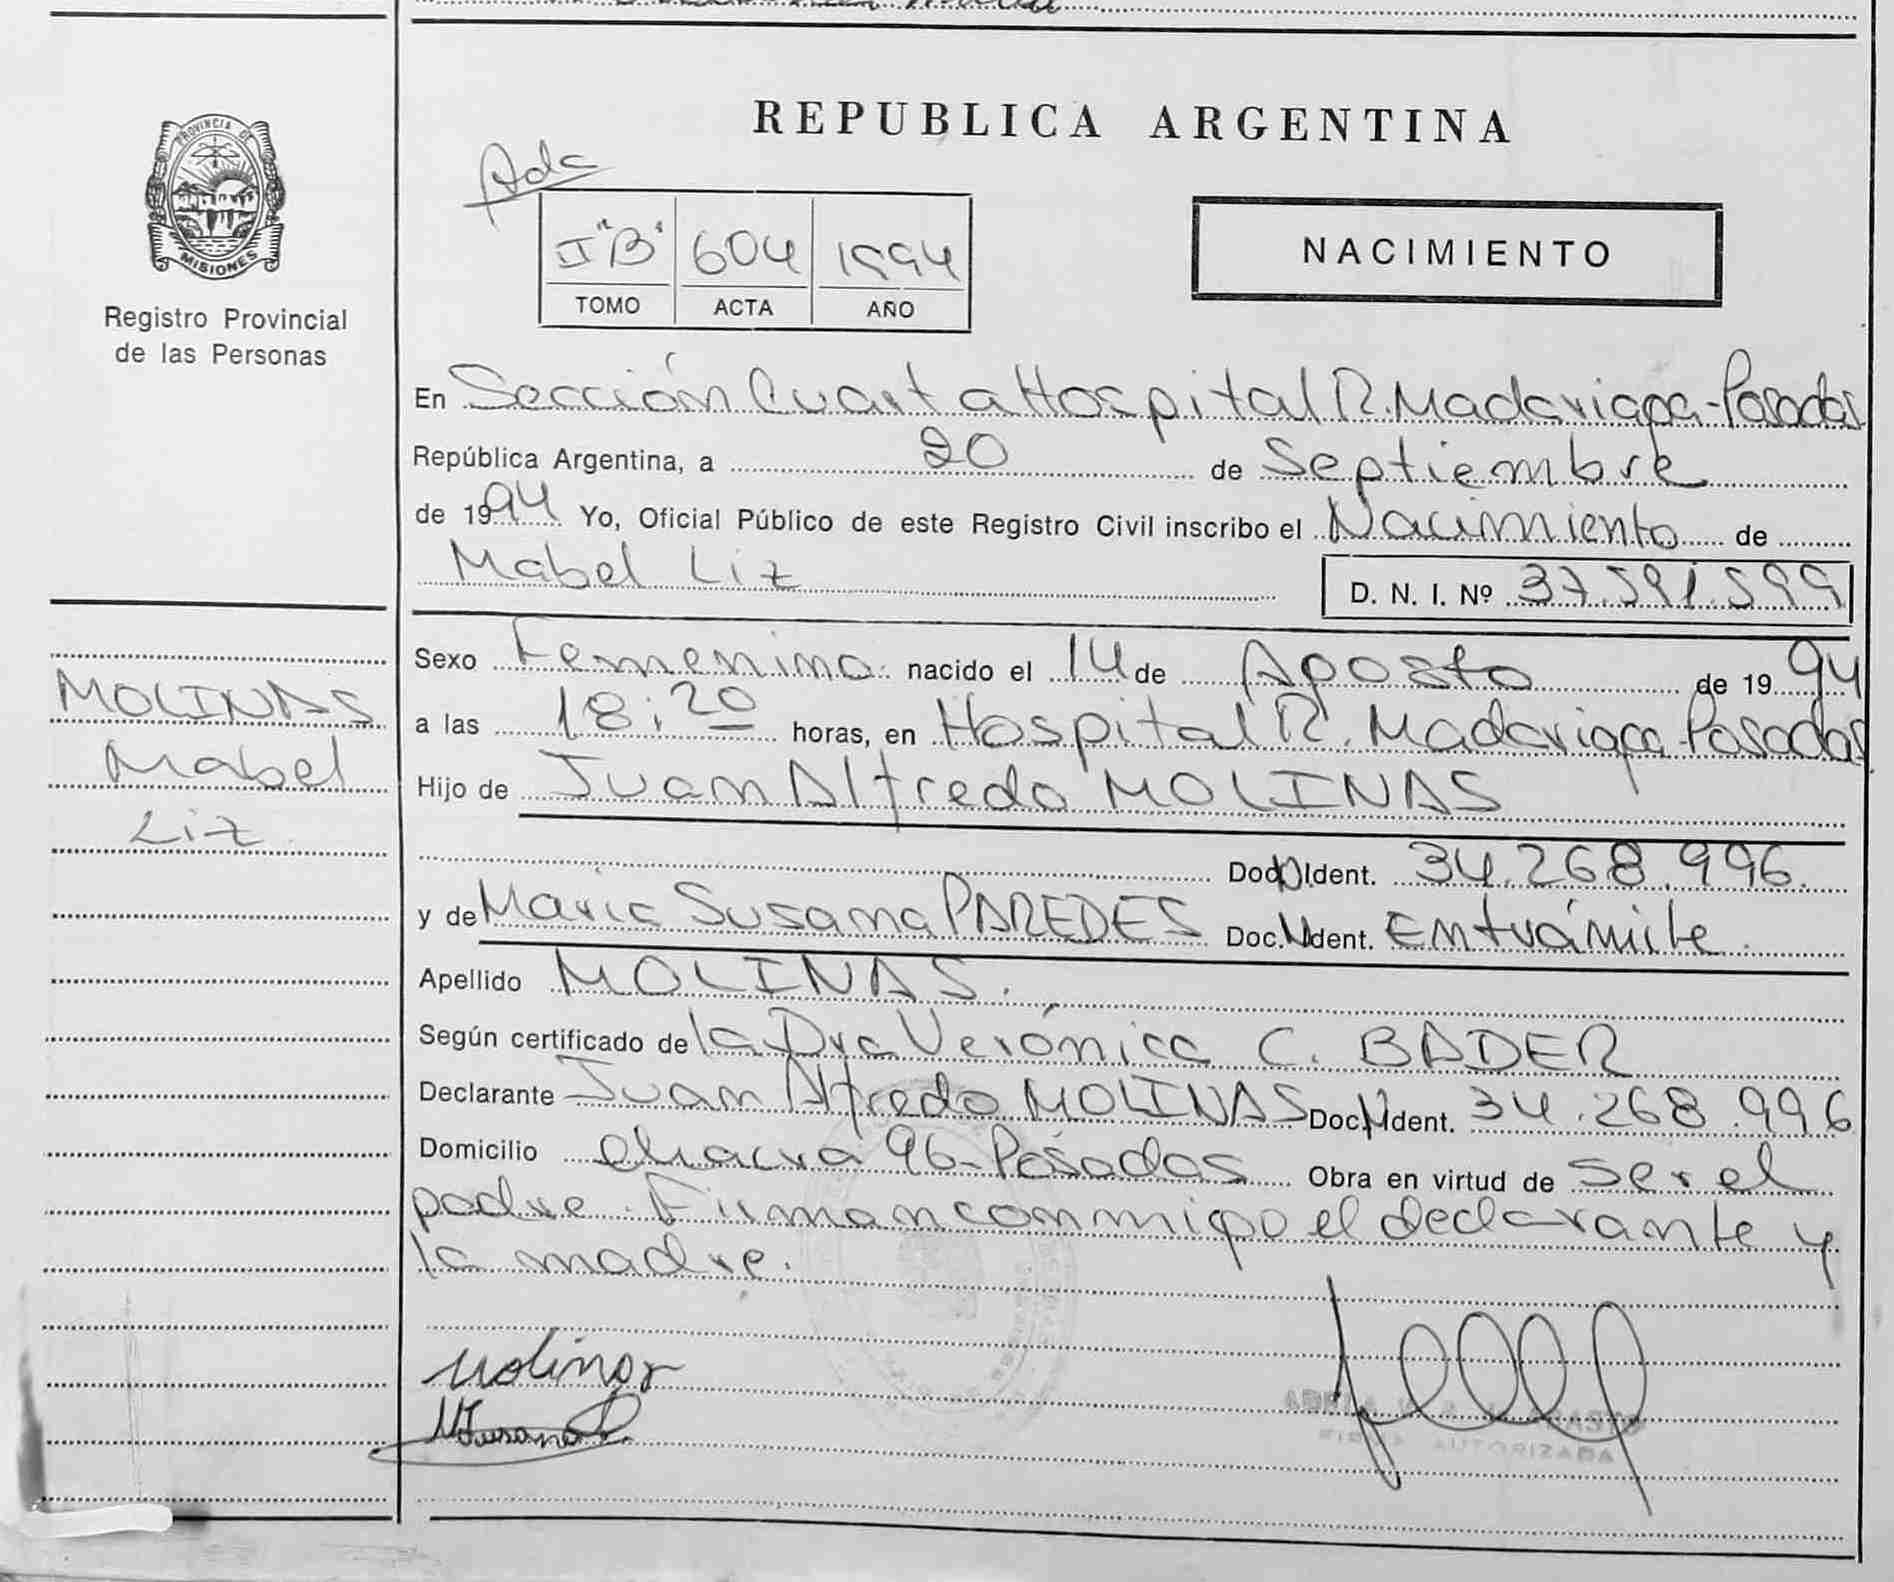 REPUBLICA ARGENTINA
PROVINCIA DE
MISIONES
Registro Provincial
de las Personas
Ada
I "B" 604 1994
TOMO ACTA AÑO
NACIMIENTO
En Sección Cuarta Hospital R. Madariaga-Posadas
República Argentina, a 20 de Septiembre
de 1994 Yo, Oficial Público de este Registro Civil inscribo el Nacimiento de
Mabel Liz D. N. I. Nº 37.591.599
MOLINAS
Mabel
Liz
Sexo Femenino. nacido el 14 de Agosto de 1994
a las 18:20 horas, en Hospital R. Madariaga-Posadas
Hijo de Juan Alfredo MOLINAS
Doc. Ident. 34.268.996.
y de Maria Susana PAREDES Doc. Ident. En trámite.
Apellido MOLINAS.
Según certificado de la Dra Verónica C. BADER
Declarante Juan Alfredo MOLINAS Doc. Ident. 34.268.996
Domicilio chacra 96-Posadas Obra en virtud de ser el
padre. Firman conmigo el declarante y
la madre.
Molinas